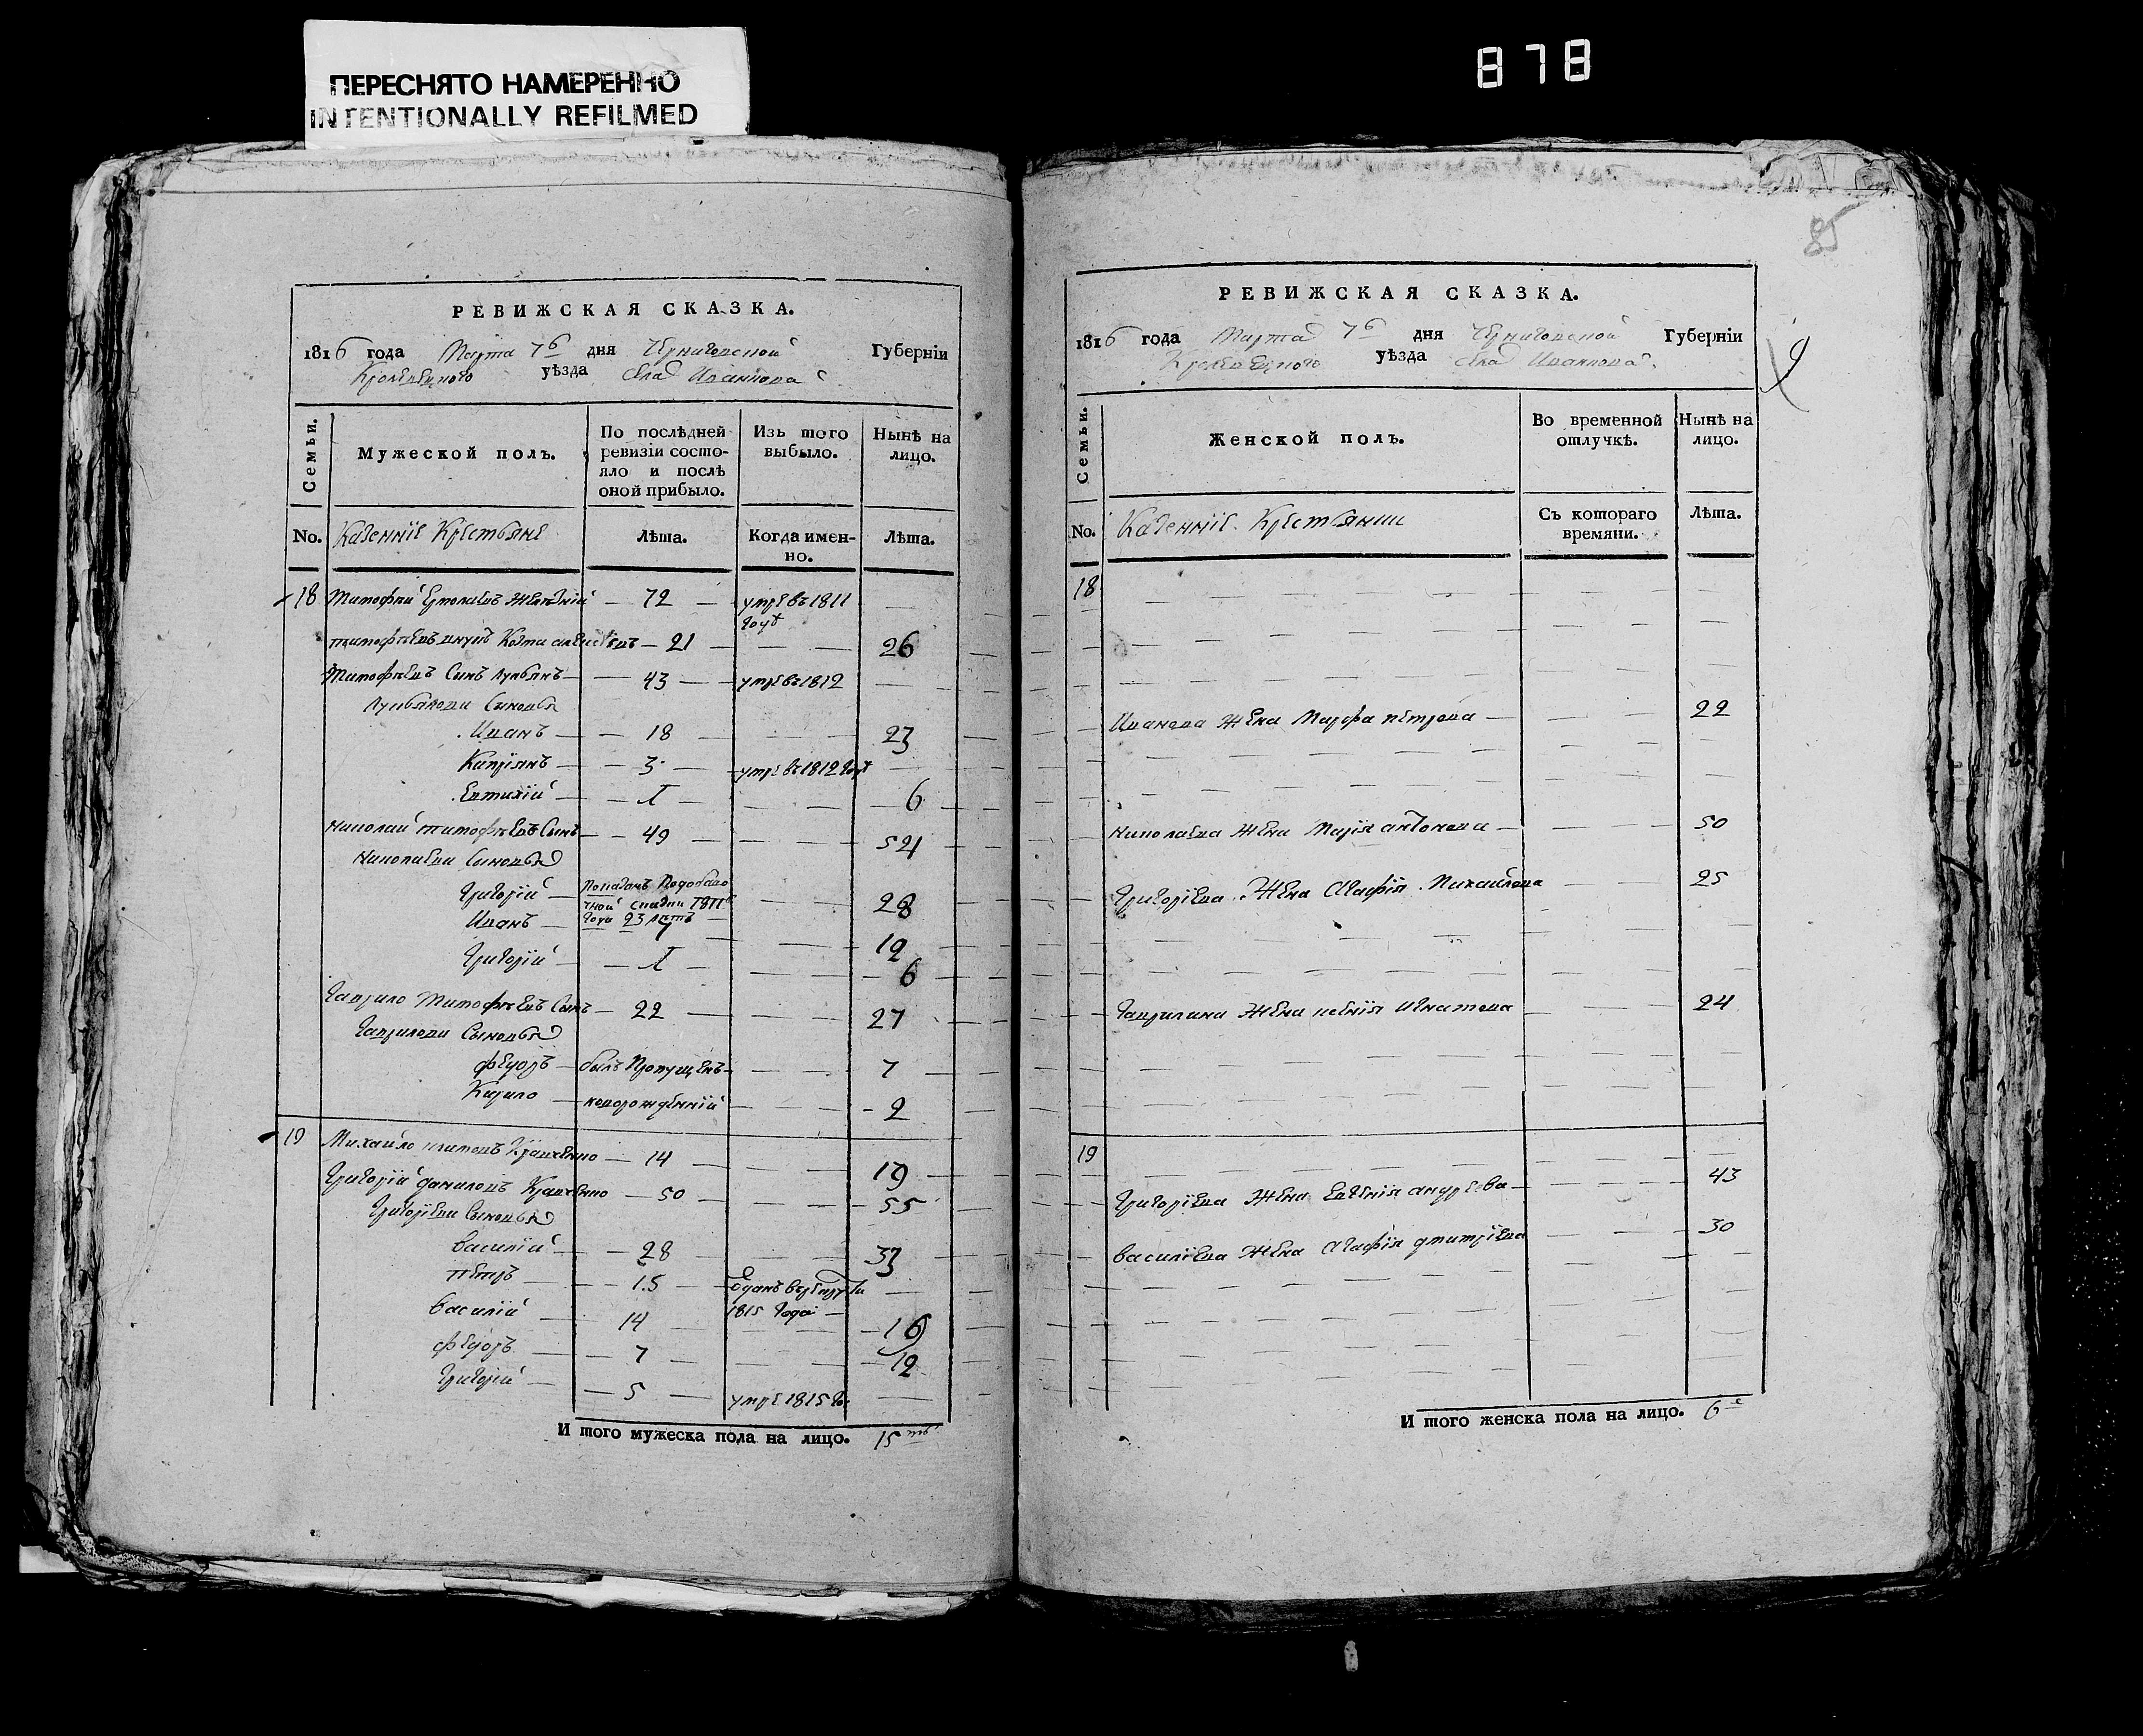 ПЕРЕСНЯТО НАМЕРЕННО
INTENTIONALLY REFILMED
878
85
РЕВИЖСКАЯ СКАЗКА.
1816 года Марта 7 дня Черниговской Губерніи
Кролевецкого уѣзда села Иванкова
Семьи. Мужеской полъ. По послѣдней ревизіи состояло и послѣ оной прибыло. Изъ того выбыло. Нынѣ на лицо.
No. Казенніе Крестьяне Лѣта. Когда именно. Лѣта.
18 Тимофей Ермолаевъ 72 умре въ 1811 году
Тимофѣевъ внукъ Козма 21 26
Тимофѣевъ Сынъ Лукьянъ 43 умре въ 1812
Лукьянови Сыновья
Иванъ 18 23
Кипріянъ 3 умре въ 1812 году
Евтихій 1 6
Николай Тимофѣевъ Сынъ 49 54
Николаеви Сыновья
Григорій 1811 года 23 летъ 28
Иванъ 7 12
Григорій 1 6
Гаврило Тимофѣевъ Сынъ 22 27
Гаврилови Сыновья
Федоръ былъ пропущенъ 7
Кирило новорожденній 2
19 Михайло Кравченко 14 19
Григорій Даниловъ Кравченко 50 55
Григоріеви Сыновья
Василій 28 33
Петръ 15 отданъ въ рекруты 1815 года
Василій 14 19
Федоръ 7 12
Григорій 5 умре 1815 го
И того мужеска пола на лицо. 15
РЕВИЖСКАЯ СКАЗКА.
1816 года Марта 7 дня Черниговской Губерніи
Кролевецкого уѣзда села Иванкова
Семьи. Женской полъ. Во временной отлучкѣ. Нынѣ на лицо.
No. Казенніе Крестьянки Съ котораго времяни. Лѣта.
18
Иванова Жена Марфа Петрова 22
Николаева Жена Марія Антонова 50
Григоріева Жена Агафія Михайлова 25
Гаврилина Жена Игнатова 24
19
Григоріева Жена Евгенія Андреева 43
Василіева Жена Агафія Дмитріева 30
И того женска пола на лицо. 6